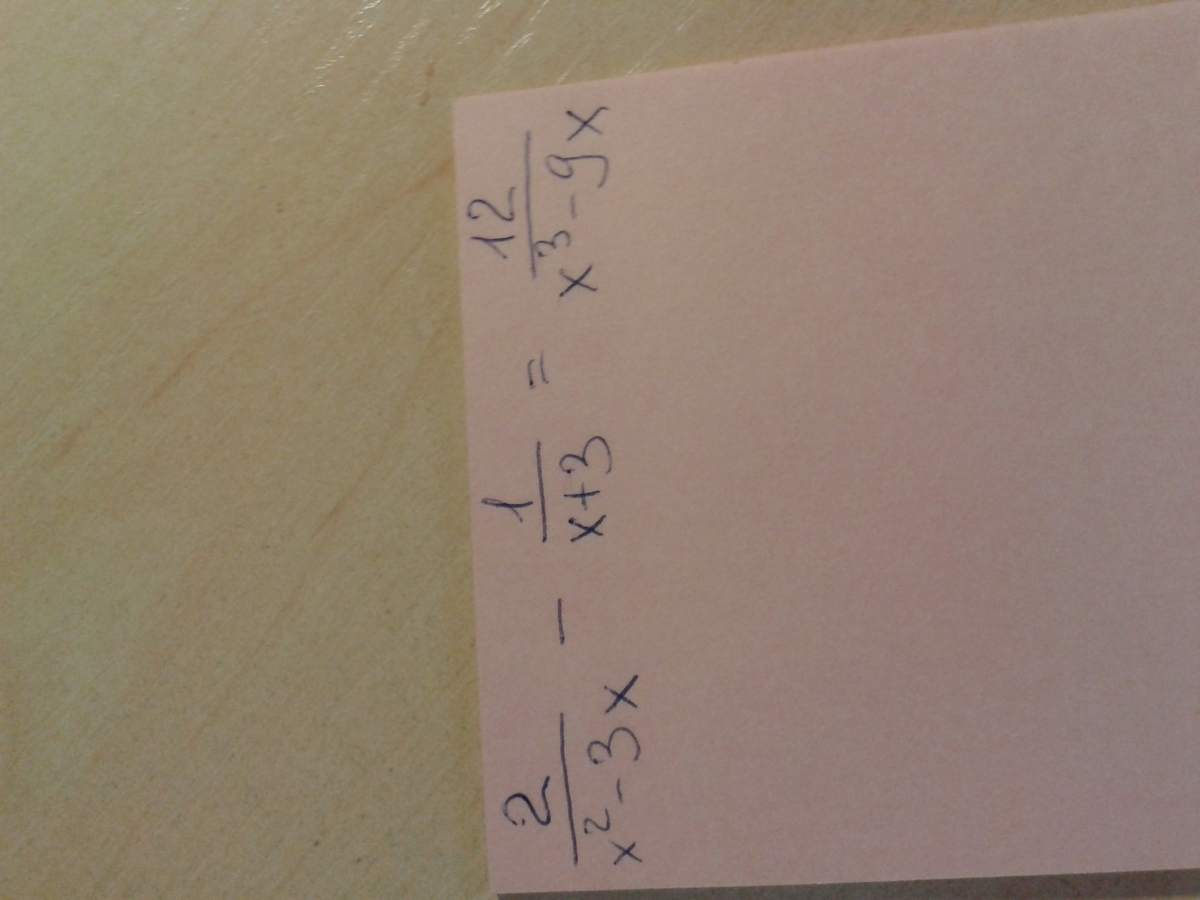 2/(x² - 3x) - 1/(x+3) = 12/(x³ - 9x)